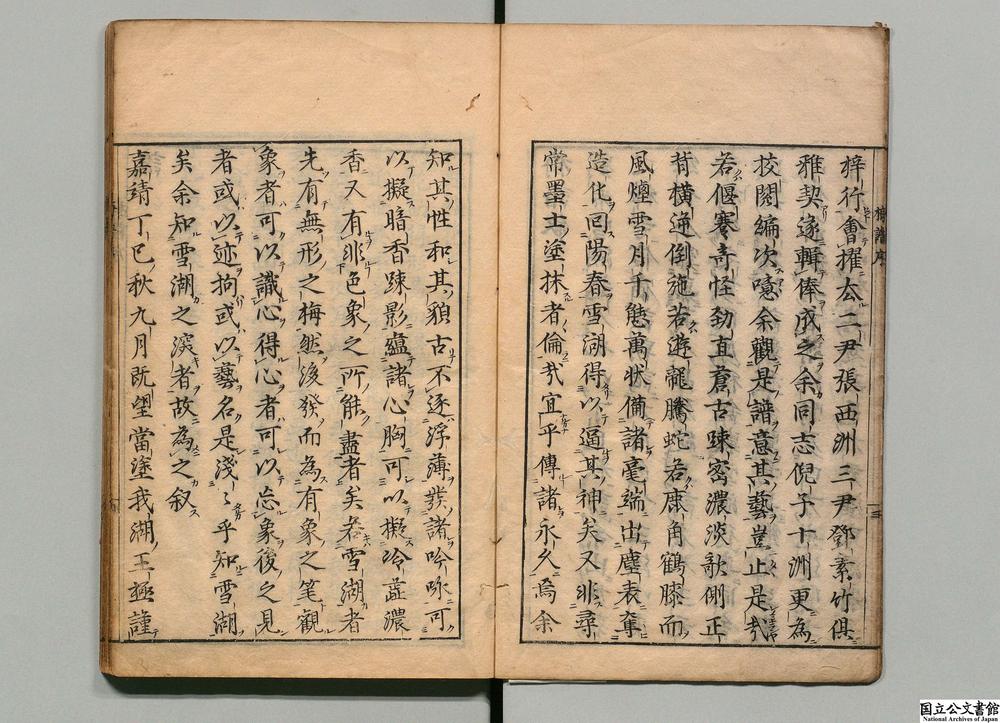 梓行會擢公二尹張西洲三尹鄧素竹俱
雅契遂輯俸成之余同志倪子十洲更為
校閱編次噫余觀是譜意其藝豈止是哉
若偃蹇奇怪勁直蒼古踈密濃淡欹側正
背橫逆倒施若遊龍騰蛇若鹿角鶴膝而
風煙雪月千態萬狀備諸毫端出塵表奪
造化回陽春雪湖得以逼其神矣又非尋
常墨士塗抹者倫哉宜乎傳諸永久焉余
知其性和其貌古不逐浮薄發諸吟咏可
以擬暗香踈影蘊諸心胸可以擬冷蘂濃
香又有非色象之所能盡者矣若雪湖者
先有無形之梅然後發而為有象之笔觀
象者可以識心得心者可以忘象後之見
者或以迹拘或以藝名是淺之乎知雪湖
矣余知雪湖之深者故為之叙
嘉靖丁巳秋九月既望當塗我湖王極謹
国立公文書館
National Archives of Japan